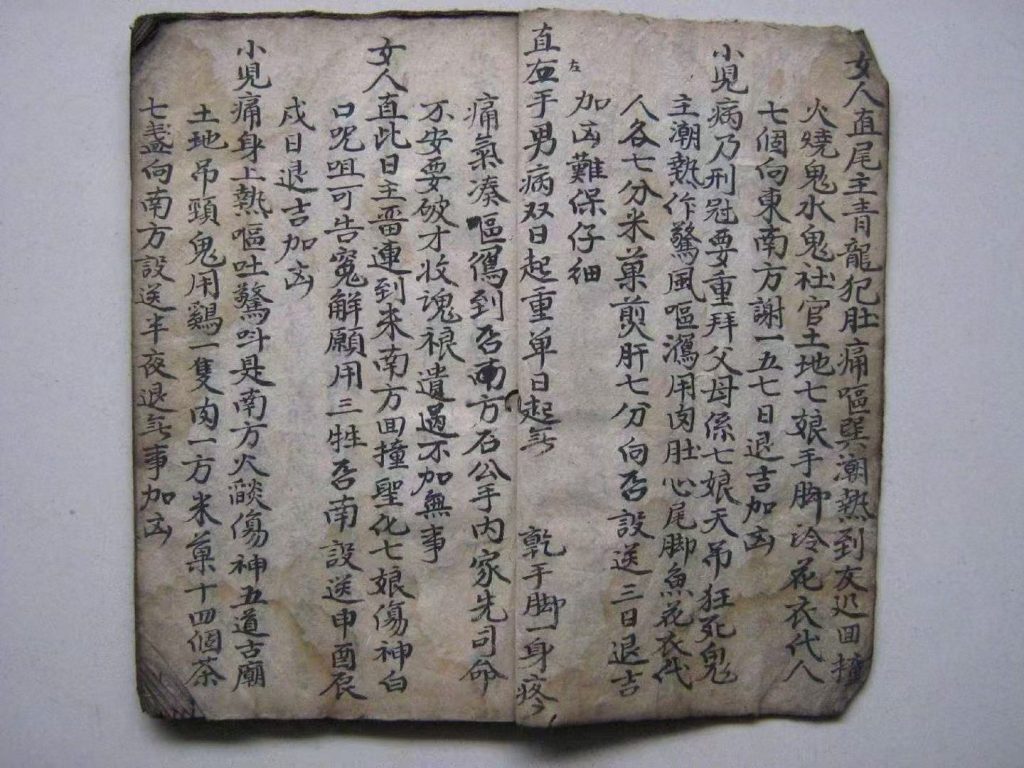 女人直尾主青龍犯肚痛嘔㒷潮熱到友迟回撞
火燒鬼水鬼社官土地七娘手脚冷花衣代人
七個向東南方謝一五七日退吉加凶
小児病乃刑尅要重拜父母係七娘天吊狂死鬼
主潮熱作驚風嘔瀉用肉肚心尾脚魚花衣代
人各七分米菓煎肝七分向否設送三日退吉
加凶難保仔細
直右左手男病双日起重单日起輕 乾手脚一身疼
痛氣凑嘔瀉到否南方石公手内家先司命
不安要破才收魂禳遺過不加無事
女人直此日主畱連到来南方回撞聖化七娘傷神白
口呪咀可告寃解願用三牲否南設送申酉辰
戌日退吉加凶
小児痛身上熱嘔吐驚呌是南方火燄傷神五道古廟
土地吊頸鬼用鷄一隻肉一方米菓十四個茶
七盞向南方設送半夜退無事加凶